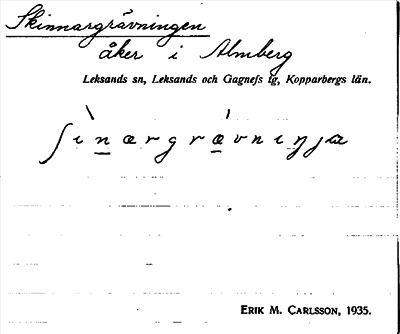 Skinnargrävningen
åker i Almberg
Leksands sn, Leksands och Gagnefs tg, Kopparbergs län.
ʃìn̲ærgrǽ̲vniŋa
ERIK M. CARLSSON, 1935.